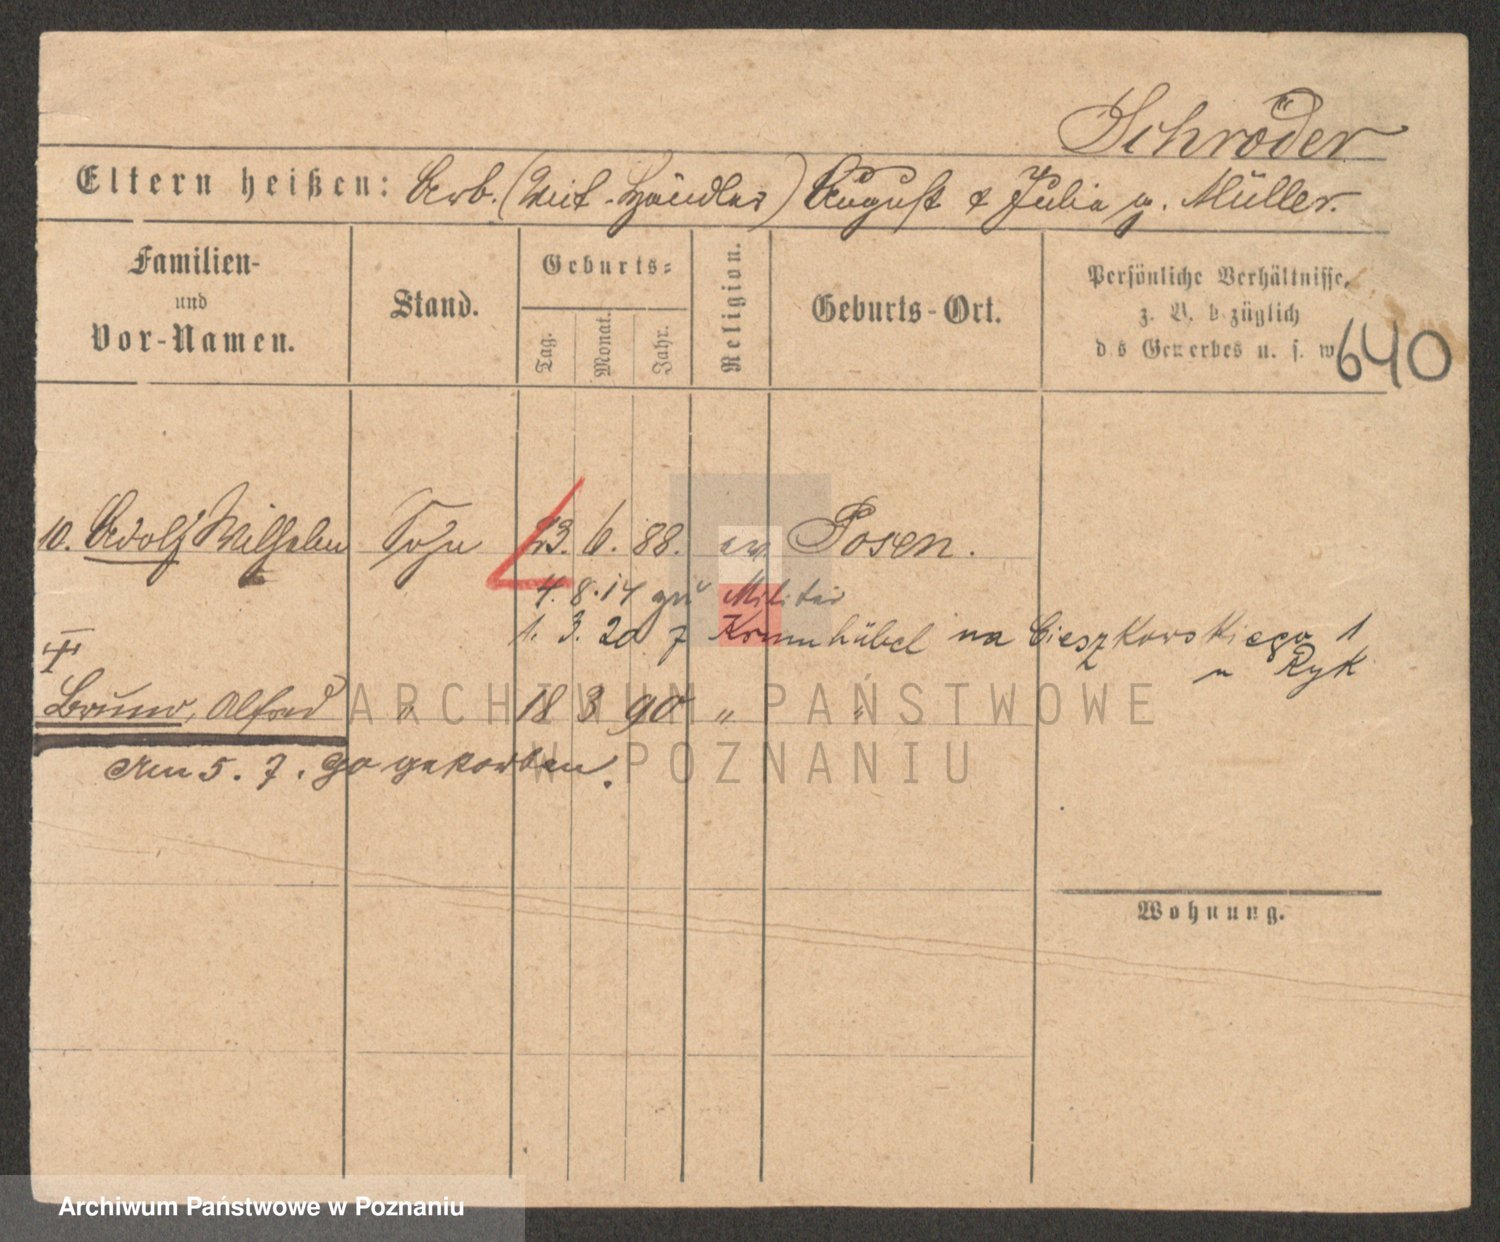 Schröder
Eltern heißen: Arb. ( Händler) August & Julia g. Müller.
Familien-
und
Vor-Namen.
Stand.
Geburts-
Tag.
Monat.
Jahr.
Religion.
Geburts-Ort.
Persönliche Verhältnisse,
z. B. bezüglich
des Gewerbes u. s. w.
640
10. Adolf Wilhelm Sohn 13. 6. 88. ev. Posen.
4. 8. 14 zu Militär
1. 3. 20 Krumhübel na Cieszkowskiego 1
u Ryk
Bruno, Alfred " 18 3 90 " "
Am 5. 7. 90 gestorben.
Wohnung.
ARCHIWUM PAŃSTWOWE
W POZNANIU
Archiwum Państwowe w Poznaniu